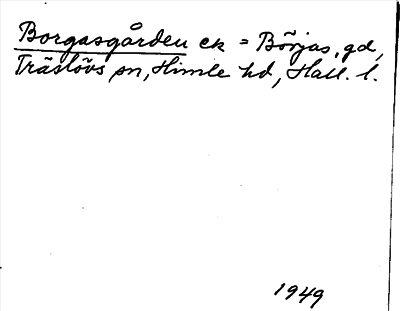 Borgasgården ek = Börjas, gd,
Träslövs sn, Himle hd, Hall. l.
1949